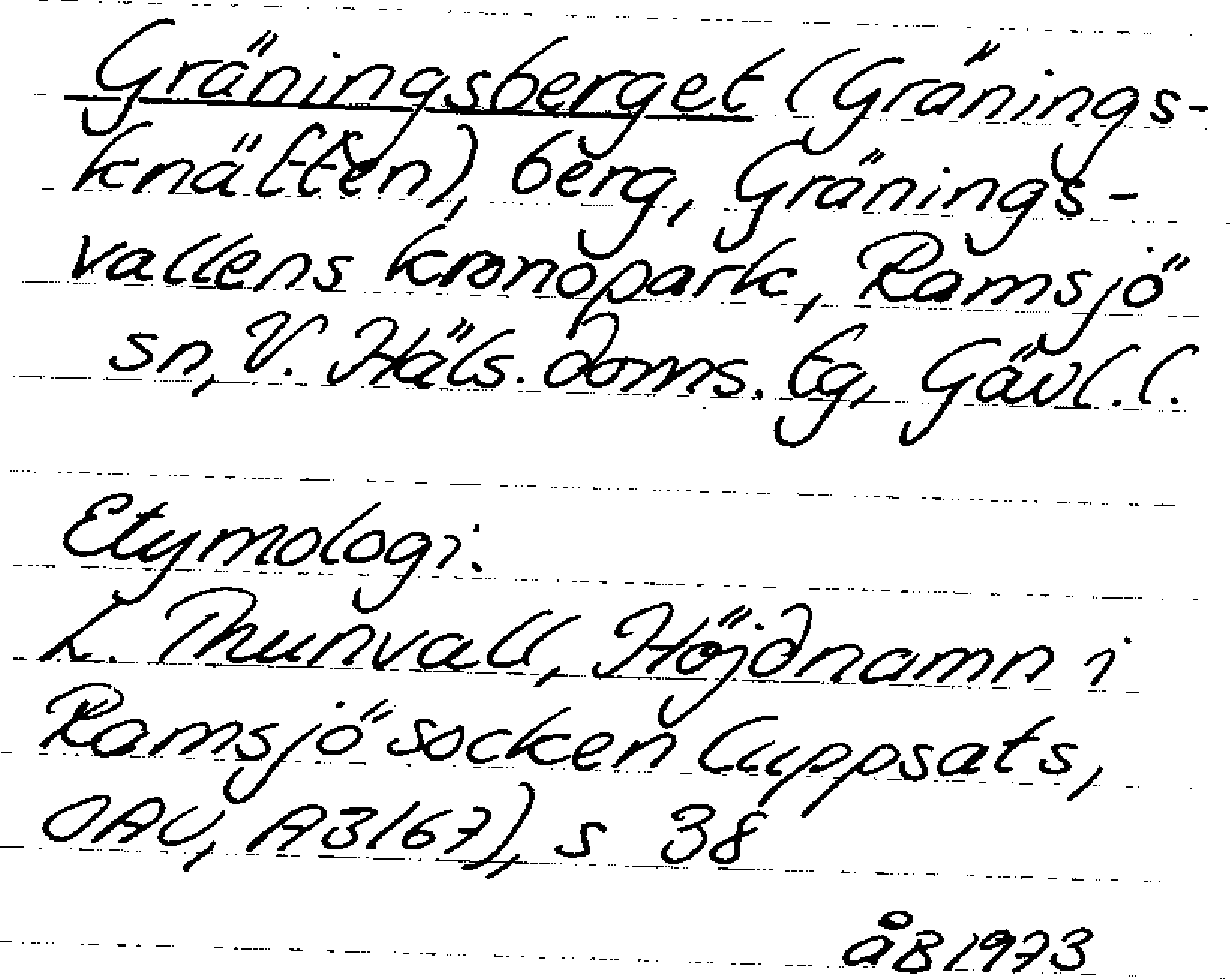 Gräningsberget (Gränings-
knätten), berg, Gränings-
vallens kronopark, Ramsjö
sn, V. Häls. doms. tg, Gävl. l.
Etymologi.
L. Thunvall, Höjdnamn i
Ramsjö socken (uppsats,
OAU, A3167), s 38
åB 1973